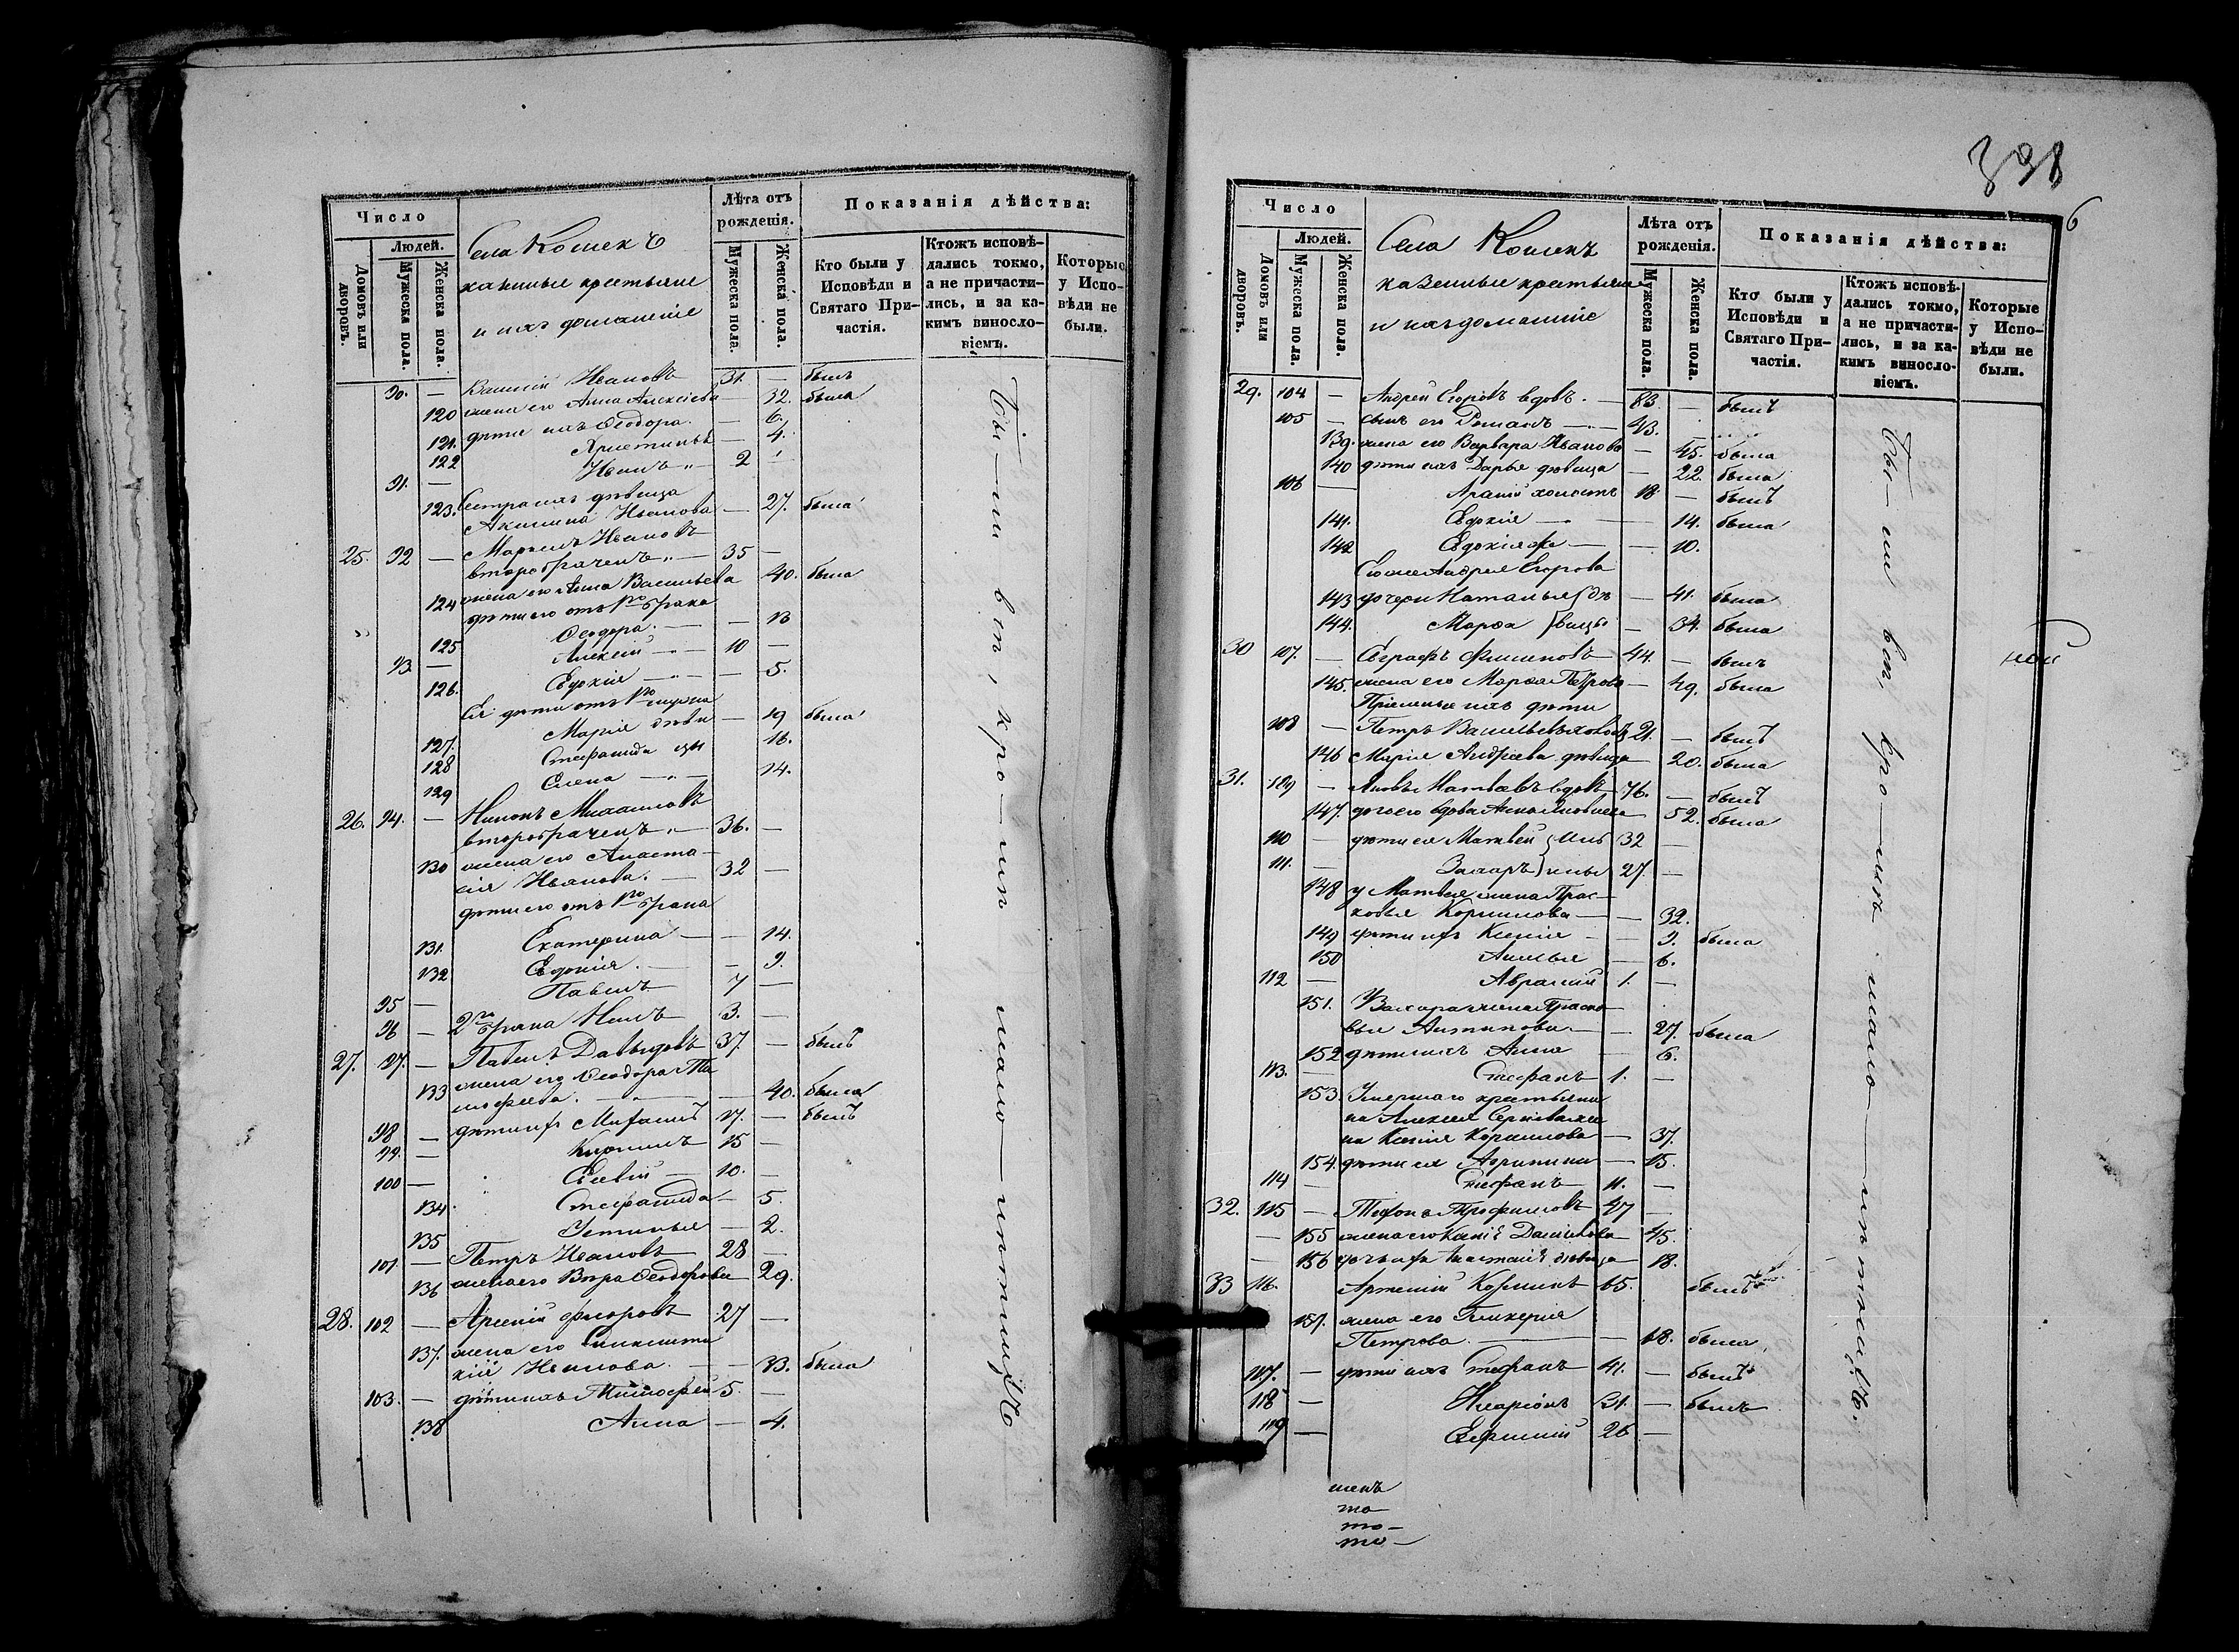 Число
Людей.
Домовъ или дворовъ.
Мужеска пола.
Женска пола.
Села Кошекъ
казенные крестьяне
и ихъ домашніе
Лѣта отъ рожденія.
Мужеска пола.
Женска пола.
Показанія дѣйства:
Кто были у Исповѣди и Святаго Причастія.
Ктожъ исповѣдались токмо, а не причастились, и за какимъ винословіемъ.
Которые у Исповѣди не были.
90. — Василій Ивановъ 31. — былъ
120 жена его Анна Алексіева — 32. была
121. дѣти ихъ Ѳеодора. — 6.
122 Христинья — 4.
91. — Иванъ „ — 2 —
Сестра ихъ дѣвица
123. Акилина Иванова — 27. была
25. 92 — Маркелъ Ивановъ
второбраченъ „ — 35 —
124 жена его Анна Васильева 40. была
дѣти его отъ 1го брака
125 Ѳеодора. — — 13
93 — Алексій — 10 —
126. Евдокія — — 5.
Ея дѣти отъ 1го мужа
127. Марія дѣви — 19 была
128 Стефанида цы 16.
129 Елена — 14.
26. 94. — Никонъ Михаиловъ
второбраченъ „ — 36. —
130 жена его Анаста-
сія Иванова. — 32 —
дѣти его отъ 1го брака
131. Екатерина — — 14.
132 Евдокія. — — 9.
95 — Павелъ 7 —
96 — 2го брака Нилъ 3. —
27. 97. — Павелъ Давыдовъ 37. — былъ
133 жена его Ѳеодора Ти
моѳеева. — — 40. была
98 — дѣти ихъ 17. — былъ
99. — Кирилъ 15 —
100 — 10. —
134. Стефанида — 5.
135 Устинья — 2.
101 — Петръ Ивановъ 28 —
136 жена его Вѣра Ѳеодорова — 29.
28. 102 — Арсеній 27 —
137. жена его Синклити
кія Иванова. — — 33. была
103. — дѣти ихъ Тимоѳей 5. —
138 Анна — 4.
Бы — ли вст, кро — мѣ мало — лѣтнихъ
398
6
Число
Людей.
Домовъ или дворовъ.
Мужеска пола.
Женска пола.
Села Кошекъ
казенные крестьяне
и ихъ домашніе
Лѣта отъ рожденія.
Мужеска пола.
Женска пола.
Показанія дѣйства:
Кто были у Исповѣди и Святаго Причастія.
Ктожъ исповѣдались токмо, а не причастились, и за какимъ винословіемъ.
Которые у Исповѣди не были.
29. 104 — Андрей Егоровъ вдовъ. — 83. — былъ
105 — сынъ его Романъ — 43.
139. жена его Варвара Иванова — 45. была
140 дѣти ихъ Дарья дѣвица — 22. была
106 — холостъ 18. — былъ
141. Евдокія — — 14. была
142 Евдокія же — — 10.
Его же Андрея Егорова
143 дочери Наталья дѣ — 41. была
144. Марѳа вицы — 34. была
30 107. — Евграфъ Филиповъ 44. — былъ
145. жена его Марѳа Петрова — 49. была
Пріемные ихъ дѣти
108 — Петръ Васильевъ холостъ 21. — былъ
146 Марія Андреева дѣвица 20. была
31. 109 — Яковъ Матвѣевъ вдовъ 76. — былъ
147. дочь его вдова Анна Яковлева 52. была
110 — дѣти ея Матвей 32 —
111. — Захаръ 27. —
148 у Матвея жена Прас-
ковья Корнилова — — 32.
149 дѣти ихъ Ксенія — — 9. была
150 — 6.
112 — Аврамій 1. —
151. У Захара жена Праско
вья Антипова — — 27. была
152 дѣти ихъ Анна — 6.
113. — Стефанъ 1. —
153. Умершаго крестьяни
на Алексея Сергѣева же
на Ксенія Корнилова — 37.
154. дѣти ея Агрипина — 15.
114 — Стефанъ 11. —
32. 115 — Трофимовъ 47 —
— 155 жена его Данилова — 45.
— 156 дочь ихъ Анастасія дѣвица — 18.
33 116. Артемій 65. былъ
157. жена его Гликерія
Петрова. — — 68. была
117. — дѣти ихъ Стефанъ 41. — былъ
118 — Иларіонъ 31. — былъ
119 — Евфимій 26 —
Бы — ли вст, кро — мѣ мало — лѣтнихъ.